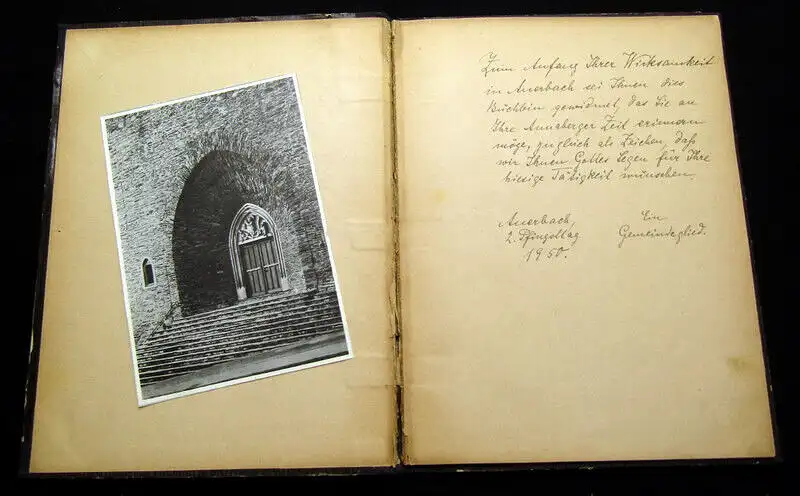 Zum Anfang Ihrer Wirksamkeit
in Auerbach sei Ihnen dies
Büchlein gewidmet, das Sie an
Ihre Annaberger Zeit erinnern
möge, zugleich als Zeichen, daß
wir Ihnen Gottes Segen für Ihre
hiesige Tätigkeit wünschen.
Auerbach,
2. Pfingsttag
1950.
Ein
Gemeindeglied.